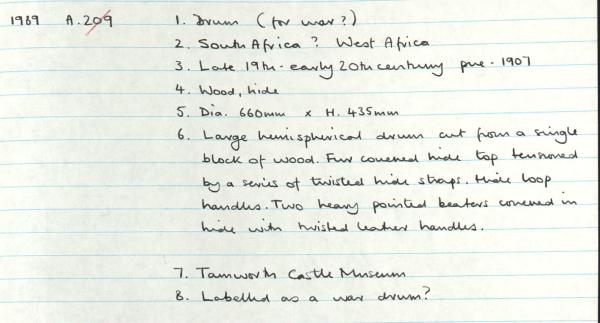 1989 A.209 1. Drum (for war?)
2. South Africa? West Africa
3. Late 19th - early 20th century pre-1907
4. Wood, hide
5. Dia. 660mm x H. 435mm
6. Large hemispherical drum cut from a single
block of wood. Fur covered hide top tensioned
by a series of twisted hide straps. Hide loop
handles. Two heavy pointed beaters covered in
hide with twisted leather handles.
7. Tamworth Castle Museum
8. Labelled as a war drum?